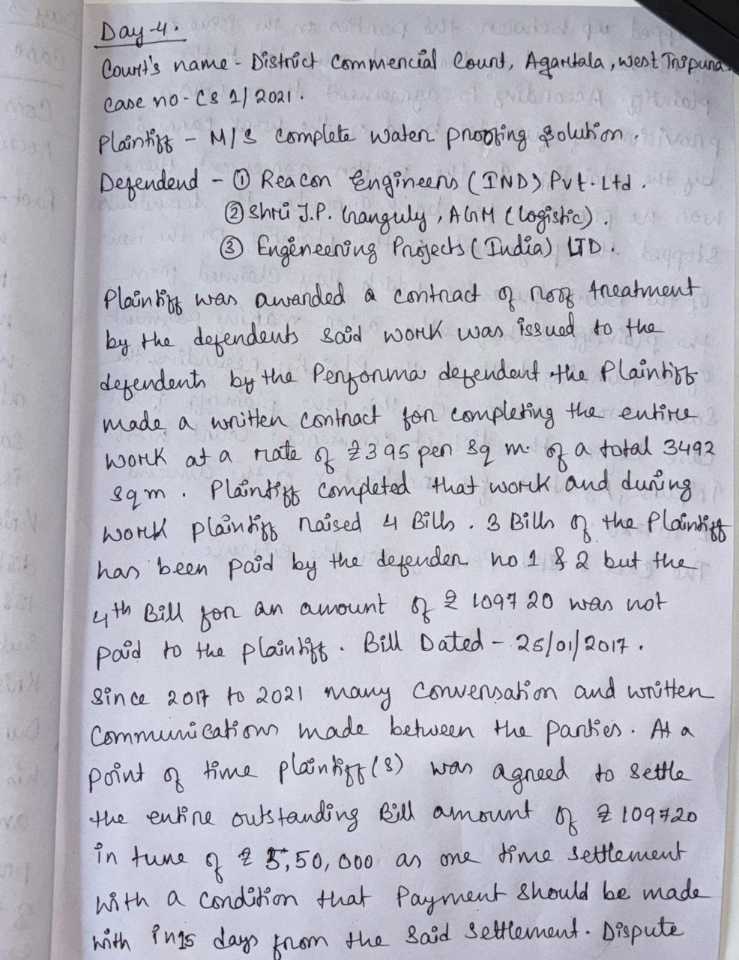 Day-4.
Court's name - District Commercial Court, Agartala, West Tripura
Case no - CS 1/2021.
Plaintiff - M/S Complete Water proofing Solution.
Defendend - ① Reacon Engineers (IND) Pvt. Ltd.
② Shri J.P. Ganguly, AGM (Logistic).
③ Engineering Projects (India) LTD.
Plaintiff was awarded a contract of roof treatment
by the defendents said work was issued to the
defendents by the Performa defendent the Plaintiff
made a written contract for completing the entire
work at a rate of ₹395 per sq m. of a total 3492
sqm. Plaintiff completed that work and during
work plaintiff raised 4 Bills. 3 Bills of the Plaintiff
has been paid by the defender no 1 & 2 but the
4th Bill for an amount of ₹ 109720 was not
paid to the plaintiff. Bill Dated - 25/01/2017.
Since 2017 to 2021 many conversation and written
communications made between the parties. At a
point of time plaintiff(s) was agreed to settle
the entire outstanding Bill amount of ₹ 109720
in tune of ₹ 5,50,000 as one time settlement
with a condition that Payment should be made
with in 15 days from the said settlement. Dispute